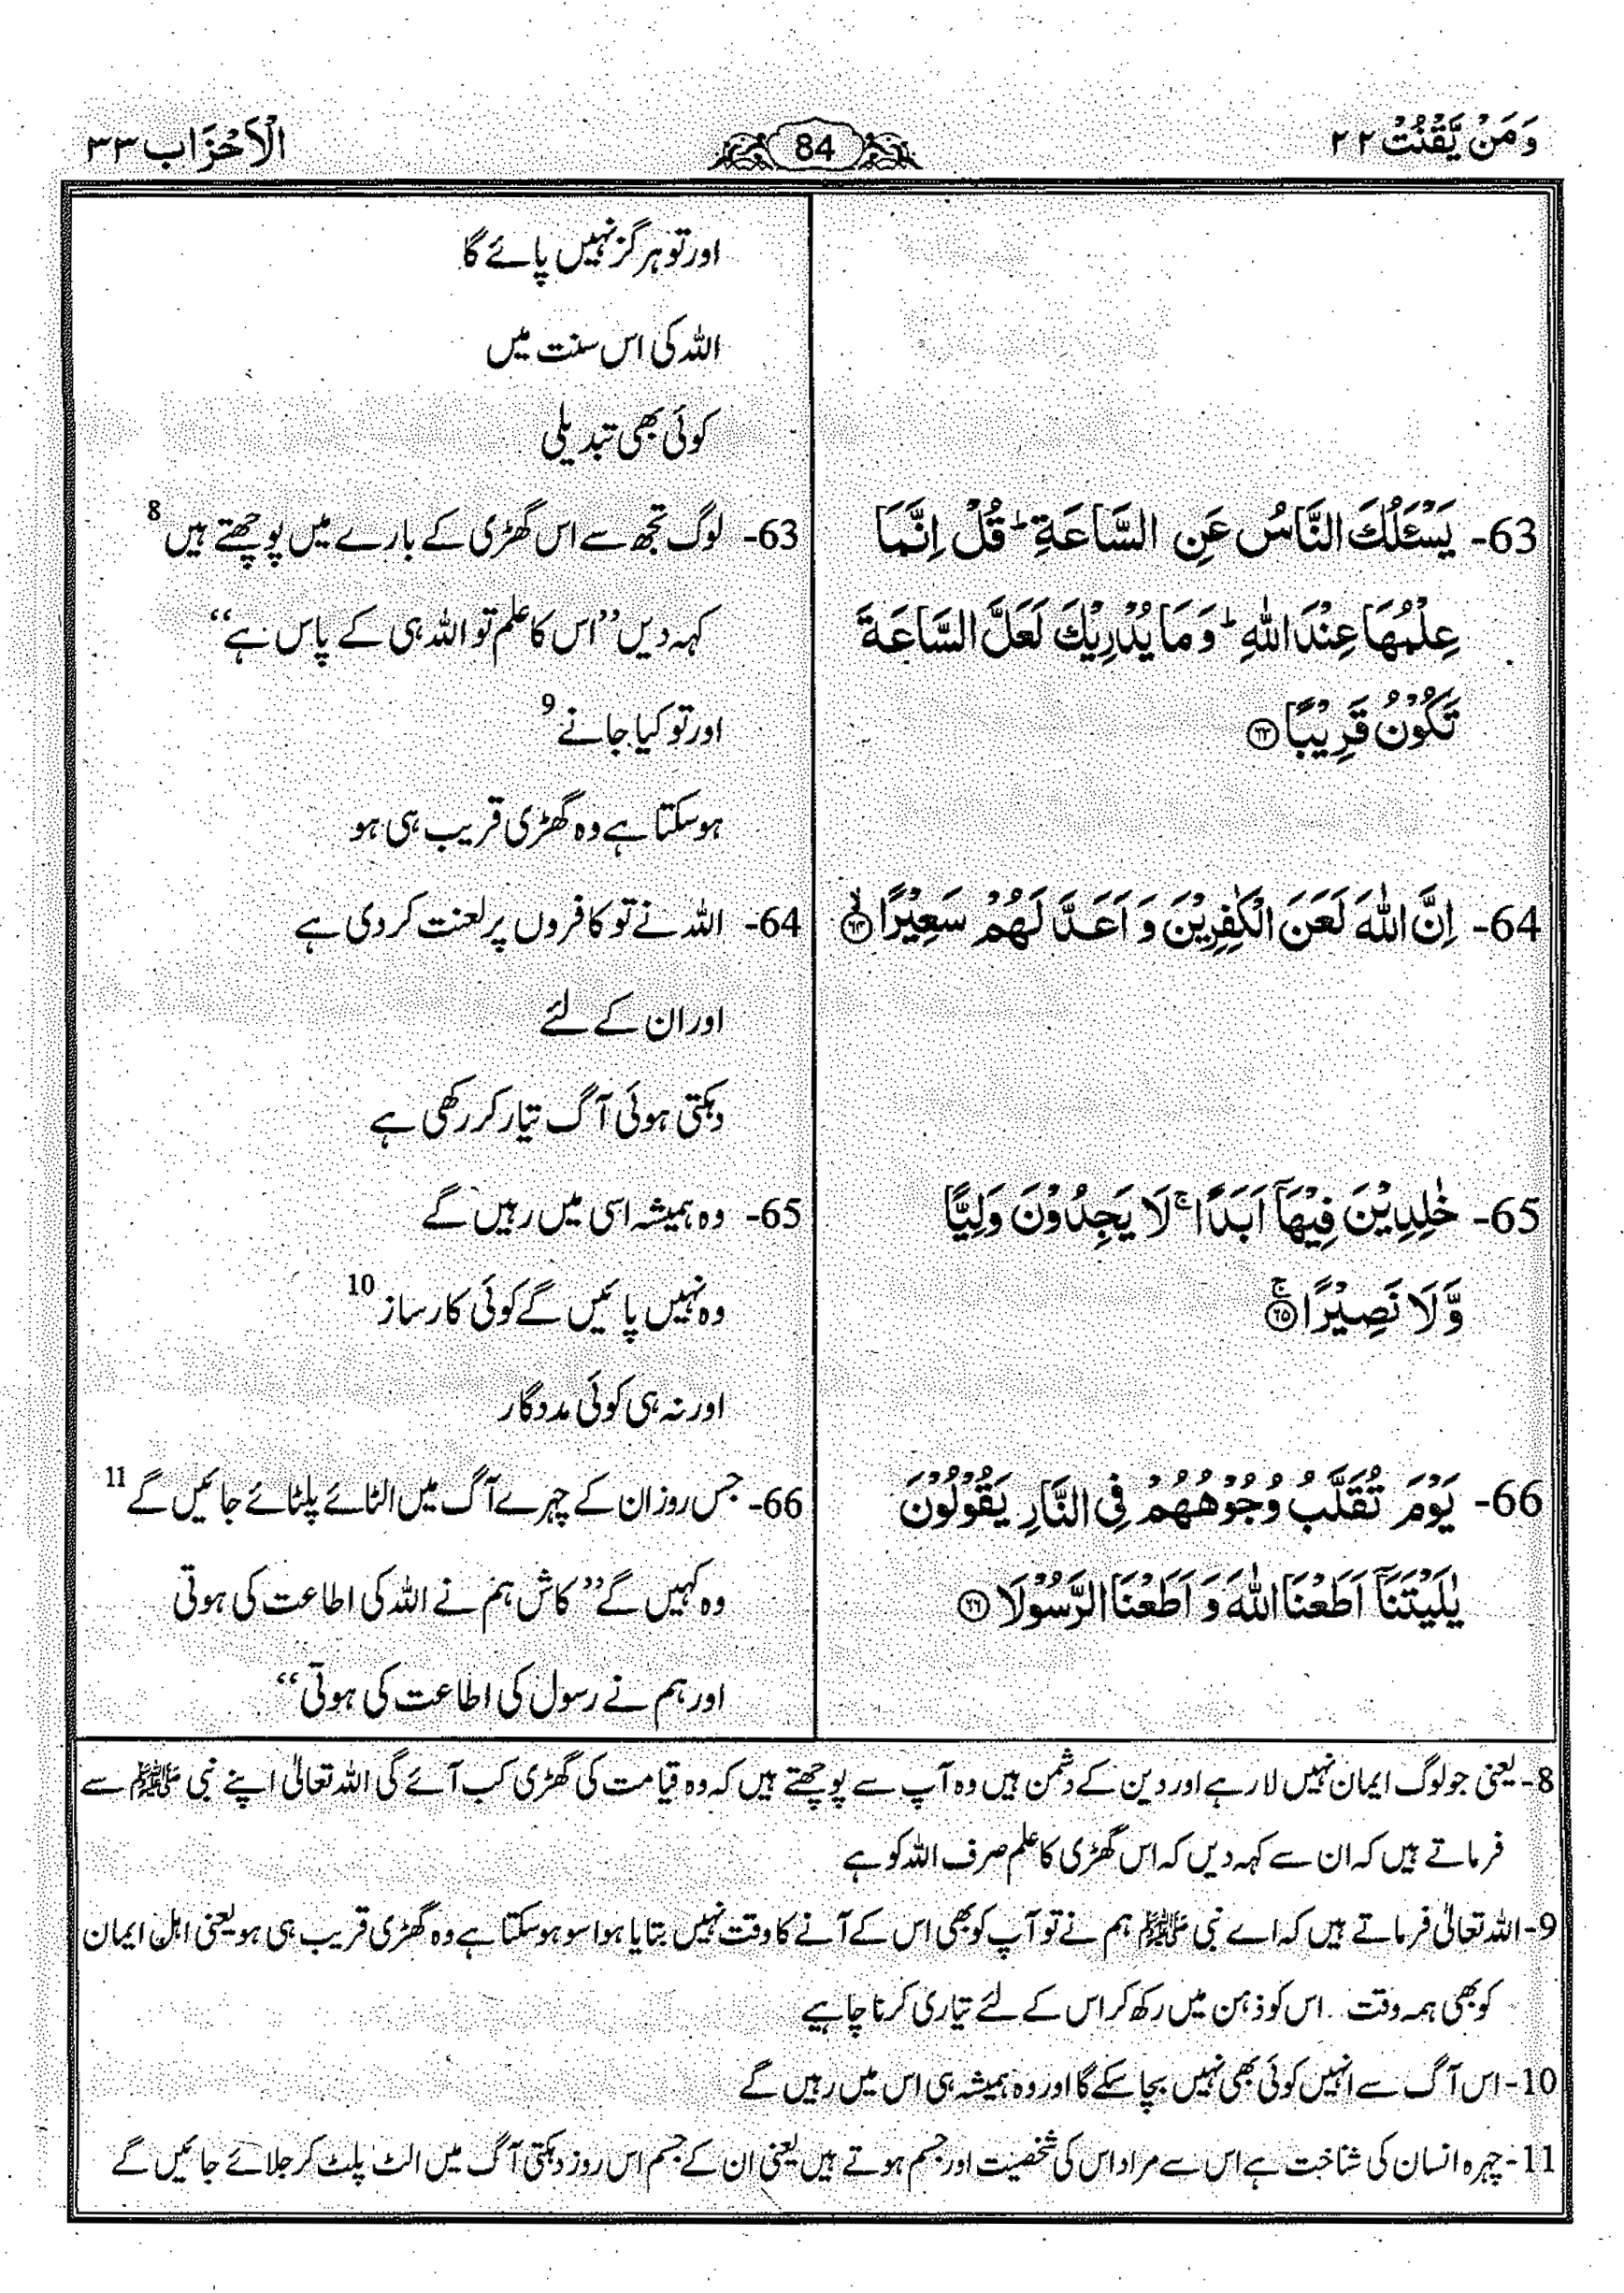 وَمَنْ يَّقْنُتْ ٢٢
84
الْاَحْزَاب ٣٣
اور تو ہرگز نہیں پائے گا
اللہ کی اس سنت میں
کوئی بھی تبدیلی
63- يَسْـَٔلُكَ النَّاسُ عَنِ السَّاعَةِ ؕ قُلْ اِنَّمَا
عِلْمُهَا عِنْدَ اللّٰهِ ؕ وَ مَا يُدْرِيْكَ لَعَلَّ السَّاعَةَ
تَكُوْنُ قَرِيْبًا ﴿٦٣﴾
63- لوگ تجھ سے اس گھڑی کے بارے میں پوچھتے ہیں 8
کہہ دیں ’’اس کا علم تو اللہ ہی کے پاس ہے‘‘
اور تو کیا جانے 9
ہو سکتا ہے وہ گھڑی قریب ہی ہو
64- اِنَّ اللّٰهَ لَعَنَ الْكٰفِرِيْنَ وَ اَعَدَّ لَهُمْ سَعِيْرًا ﴿٦٤﴾ ۙ
64- اللہ نے تو کافروں پر لعنت کر دی ہے
اور ان کے لئے
دہکتی ہوئی آگ تیار کر رکھی ہے
65- خٰلِدِيْنَ فِيْهَاۤ اَبَدًا ۚ لَا يَجِدُوْنَ وَلِيًّا
وَّ لَا نَصِيْرًا ﴿٦٥﴾ ۚ
65- وہ ہمیشہ اسی میں رہیں گے
وہ نہیں پائیں گے کوئی کارساز 10
اور نہ ہی کوئی مددگار
66- يَوْمَ تُقَلَّبُ وُجُوْهُهُمْ فِى النَّارِ يَقُوْلُوْنَ
يٰلَيْتَنَاۤ اَطَعْنَا اللّٰهَ وَ اَطَعْنَا الرَّسُوْلَا ﴿٦٦﴾
66- جس روز ان کے چہرے آگ میں الٹائے پلٹائے جائیں گے 11
وہ کہیں گے ’’کاش ہم نے اللہ کی اطاعت کی ہوتی
اور ہم نے رسول کی اطاعت کی ہوتی‘‘
8- یعنی جو لوگ ایمان نہیں لا رہے اور دین کے دشمن ہیں وہ آپ سے پوچھتے ہیں کہ وہ قیامت کی گھڑی کب آئے گی اللہ تعالیٰ اپنے نبی ﷺ سے
فرماتے ہیں کہ ان سے کہہ دیں کہ اس گھڑی کا علم صرف اللہ کو ہے
9- اللہ تعالیٰ فرماتے ہیں کہ اے نبی ﷺ ہم نے تو آپ کو بھی اس کے آنے کا وقت نہیں بتایا ہوا سو ہو سکتا ہے وہ گھڑی قریب ہی ہو یعنی اہل ایمان
کو بھی ہمہ وقت اس کو ذہن میں رکھ کر اس کے لئے تیاری کرنا چاہیے
10- اس آگ سے انہیں کوئی بھی نہیں بچا سکے گا اور وہ ہمیشہ ہی اس میں رہیں گے
11- چہرہ انسان کی شناخت ہے اس سے مراد اس کی شخصیت اور جسم ہوتے ہیں یعنی ان کے جسم اس روز دہکتی آگ میں الٹ پلٹ کر جلائے جائیں گے